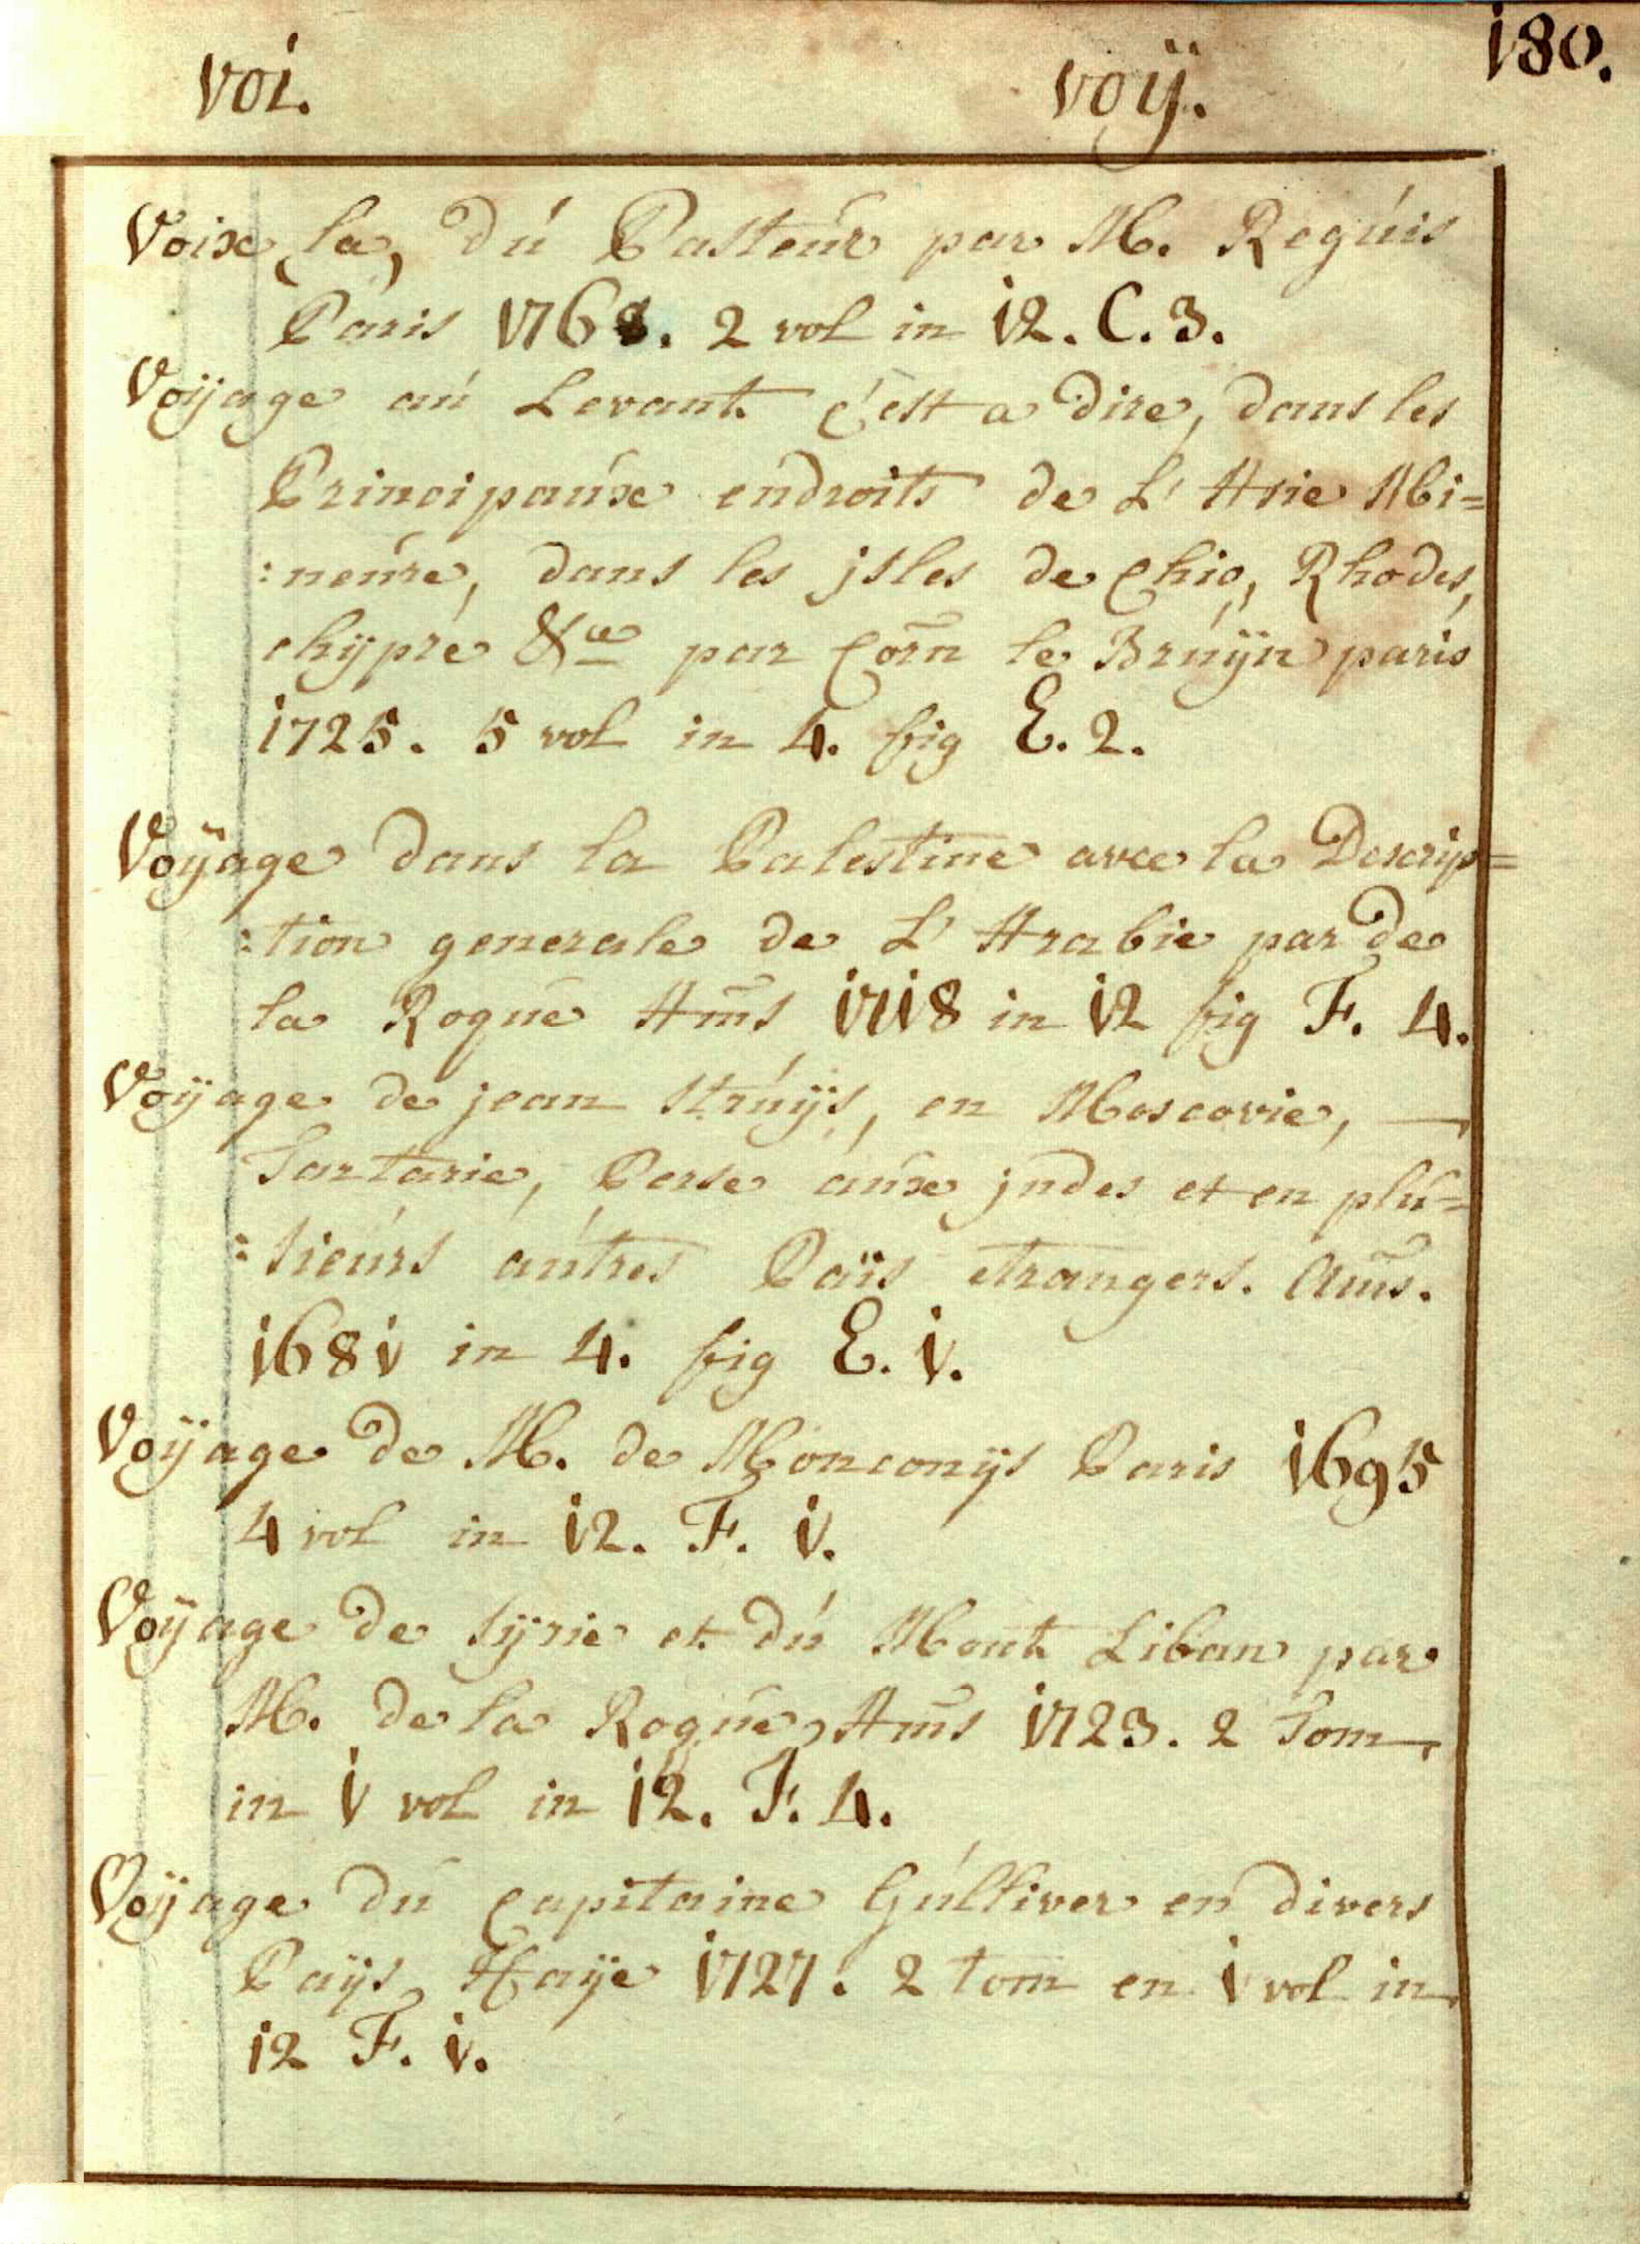 voi.
voÿ.
180.
Voix, la, dú Pasteúr par M. Regúis
Paris 1768. 2 vol in 12. C. 3.
Voÿage aú Levant c'est a dire, dans les
Principaúx endroits de L'Asie Mi=
:neúre, dans les jsles de Chio, Rhodes,
chÿpre &ce par Corn le Brúÿn paris
1725. 5 vol in 4. fig E. 2.
Voÿage dans la Palestine avec la Descrip=
:tion generale de L'Arabie par de
la Roqúe Ams 1718 in 12 fig F. 4.
Voÿage de jean Strúÿs, en Moscovie, —
Tartarie, Perse aúx jndes et en plú=
:sieúrs aútres Païs etrangers. Ams.
1681 in 4. fig E. 1.
Voÿage de M. de Monconÿs Paris 1695
4 vol in 12. F. 1.
Voÿage de Sÿrie et dú Mont Liban par
M. de la Roqúe, Ams 1723. 2 Tom
in 1 vol in 12. F. 4.
Voÿage dú Capitaine Gúlliver en divers
Paÿs, Haÿe 1727. 2 tom en 1 vol in
12 F. 1.